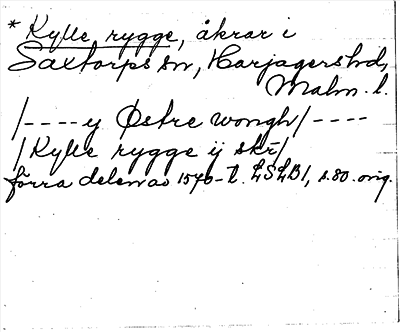 * Kylle rygge, åkrar i
Saxtorps sn, Harjagers hd,
Malm. l.
/---- y Østre wongh/----
/Kylle rygge ij skr̄/
förra delen av 1570-t. LSLB1, s.80. orig.